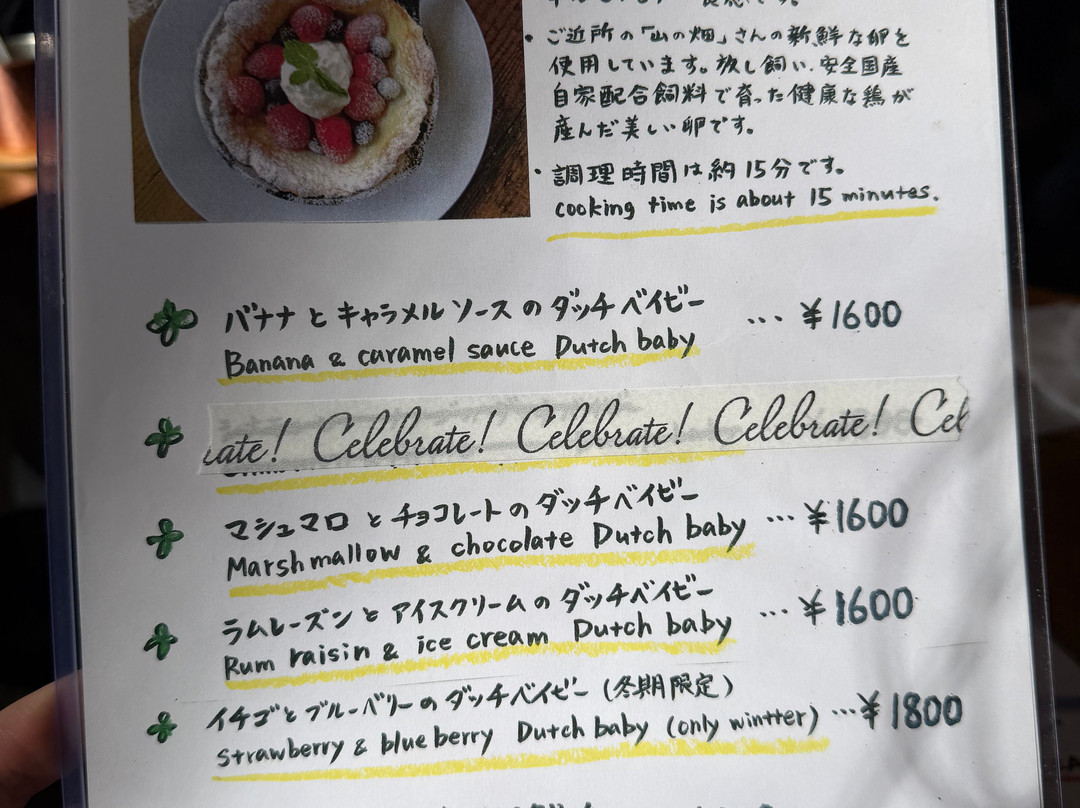 ご近所の「山の畑」さんの新鮮な卵を
使用しています。放し飼い、安全国産
自家配合飼料で育った健康な鶏が
産んだ美しい卵です。
・調理時間は約15分です。
cooking time is about 15 minutes.
バナナとキャラメルソースのダッチベイビー ... ¥1600
Banana & caramel sauce Dutch baby
ate! Celebrate! Celebrate! Celebrate! Cel
マシュマロとチョコレートのダッチベイビー ... ¥1600
Marshmallow & chocolate Dutch baby
ラムレーズンとアイスクリームのダッチベイビー ... ¥1600
Rum raisin & ice cream Dutch baby
イチゴとブルーベリーのダッチベイビー (冬期限定) ... ¥1800
strawberry & blueberry Dutch baby (only wintter)